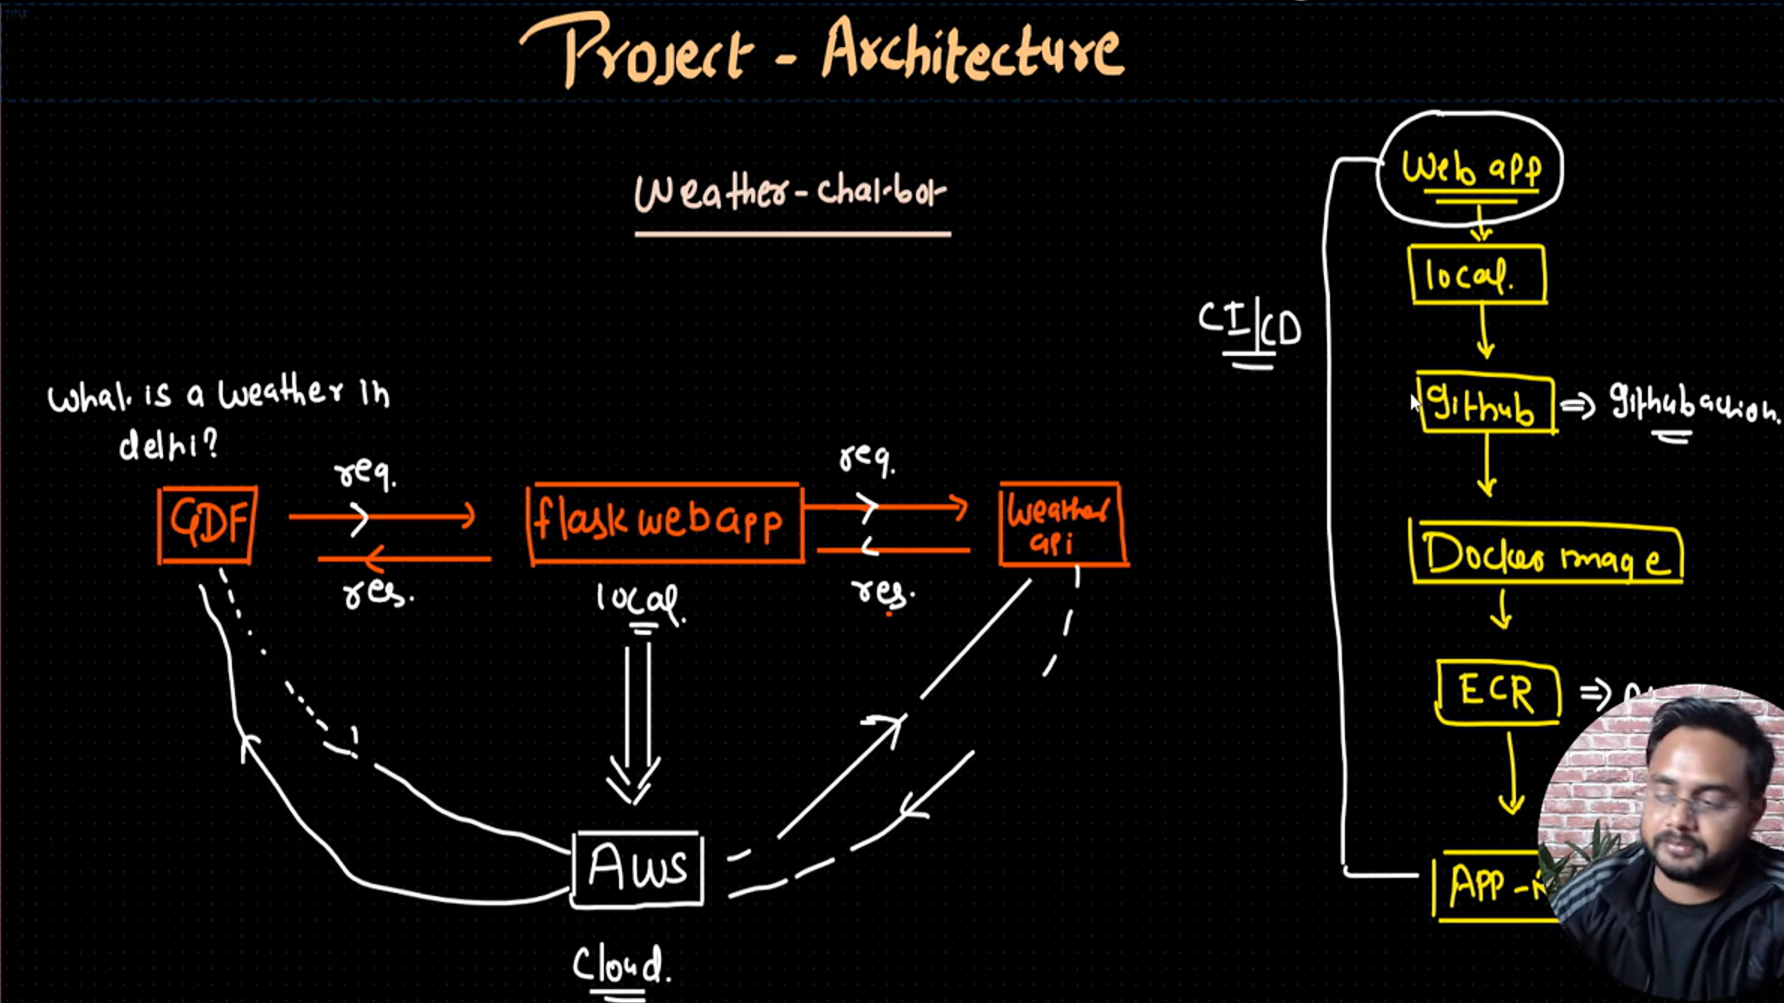 Project - Architecture
Weather-chat-bot
What is a weather in
delhi?
GDF
req.
res.
flask web app
local.
req.
res.
Weather
api
AWS
Cloud.
CI/CD
Web app
local.
Github
=> github action.
Docker image
ECR
=>
App -